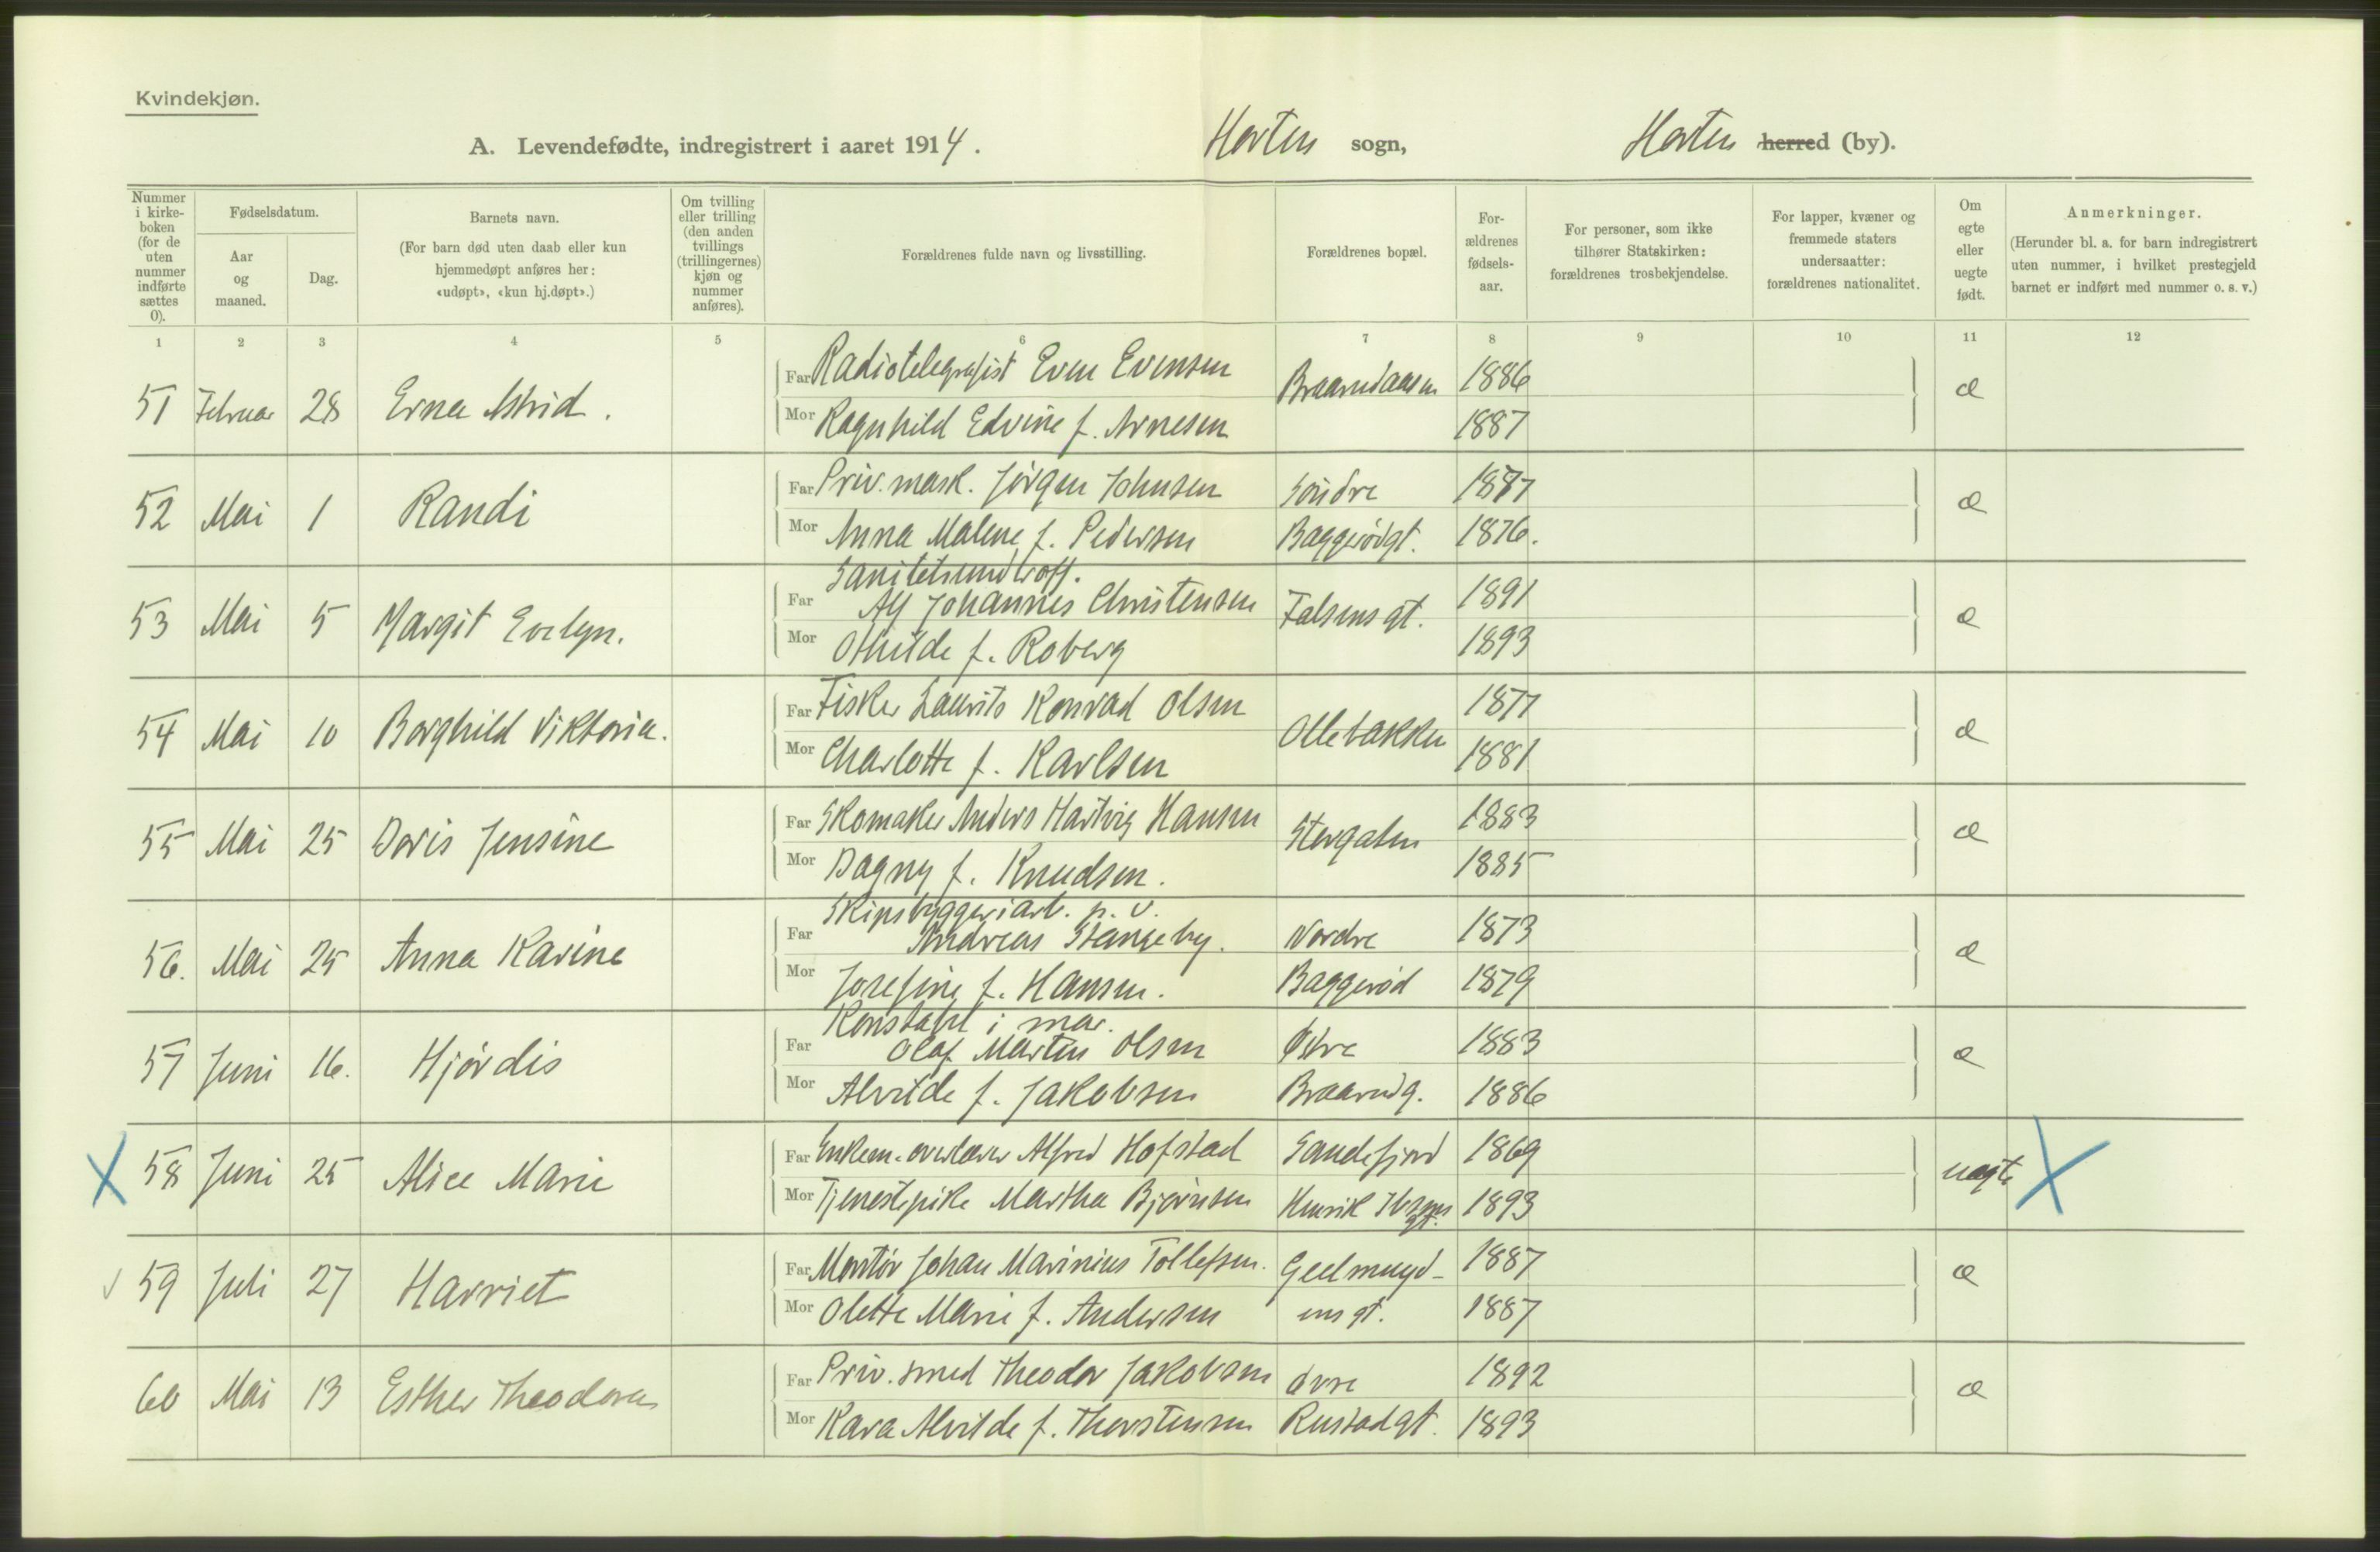 Kvindekjøn.
A. Levendefødte, indregistrert i aaret 1914. Horten sogn, Horten herred (by).
Nummer i kirkeboken (for de uten nummer indførte sættes 0).
Fødselsdatum.
Aar og maaned.
Dag.
Barnets navn.
(For barn død uten daab eller kun hjemmedøpt anføres her: «udøpt», «kun hj.døpt».)
Om tvilling eller trilling (den anden tvillings (trillingernes) kjøn og nummer anføres).
Forældrenes fulde navn og livsstilling.
Forældrenes bopæl.
Forældrenes fødselsaar.
For personer, som ikke tilhører Statskirken: forældrenes trosbekjendelse.
For lapper, kvæner og fremmede staters undersaatter: forældrenes nationalitet.
Om egte eller uegte født.
Anmerkninger.
(Herunder bl. a. for barn indregistrert uten nummer, i hvilket prestegjeld barnet er indført med nummer o. s. v.)
1 2 3 4 5 6 7 8 9 10 11 12
51 Februar 28 Erna Astrid. Far Radiotelegrafist Even Evensen 1886 æ
Mor Ragnhild Edvine f. Arnesen 1887
52 Mai 1 Randi Far Priv. mask. Jørgen Johnsen Söndre 1887 æ
Mor Anna Malene f. Pedersen Baggerödgt. 1876.
Sanitetsundroff.
53 Mai 5 Margit Evelyn. Far Alf Johannes Christensen Falsens gt. 1891 æ
Mor Othilde f. Roberg 1893
54 Mai 10 Borghild Viktoria. Far Fisker Laurits Konrad Olsen Ollebakken 1877 æ
Mor Charlotte f. Karlsen 1881
55 Mai 25 Doris Jensine Far Skomaker Anders Hartvig Hansen Storgaten 1883 æ
Mor Dagny f. Knudsen. 1885
Skipsbyggeriarb. p. v.
56. Mai 25 Anna Karine Far Andreas Stangeby. Nordre 1873 æ
Mor Josefine f. Hansen. Baggeröd 1879
Konstabel i mar.
57 Juni 16. Hjördis Far Olaf Martin Olsen Østre 1883 æ
Mor Alvilde f. Jakobsen Braarudg. 1886
58 Juni 25 Alice Marie Far Enkem. overlærer Alfred Hofstad Sandefjord 1869 uegte
Mor Tjenestepike Martha Bjørnsen Henrik Ibsens gt. 1893
59 Juli 27 Harriet Far Montör Johan Marinius Tollefsen. Geelmuyd- 1887 æ
Mor Olette Marie f. Andersen ens gt. 1887
60 Mai 13 Esther Theodora Far Priv. smed Theodor Jakobsen Øvre 1892 æ
Mor Kara Alvilde f. Thorstensen Rustadgt. 1893